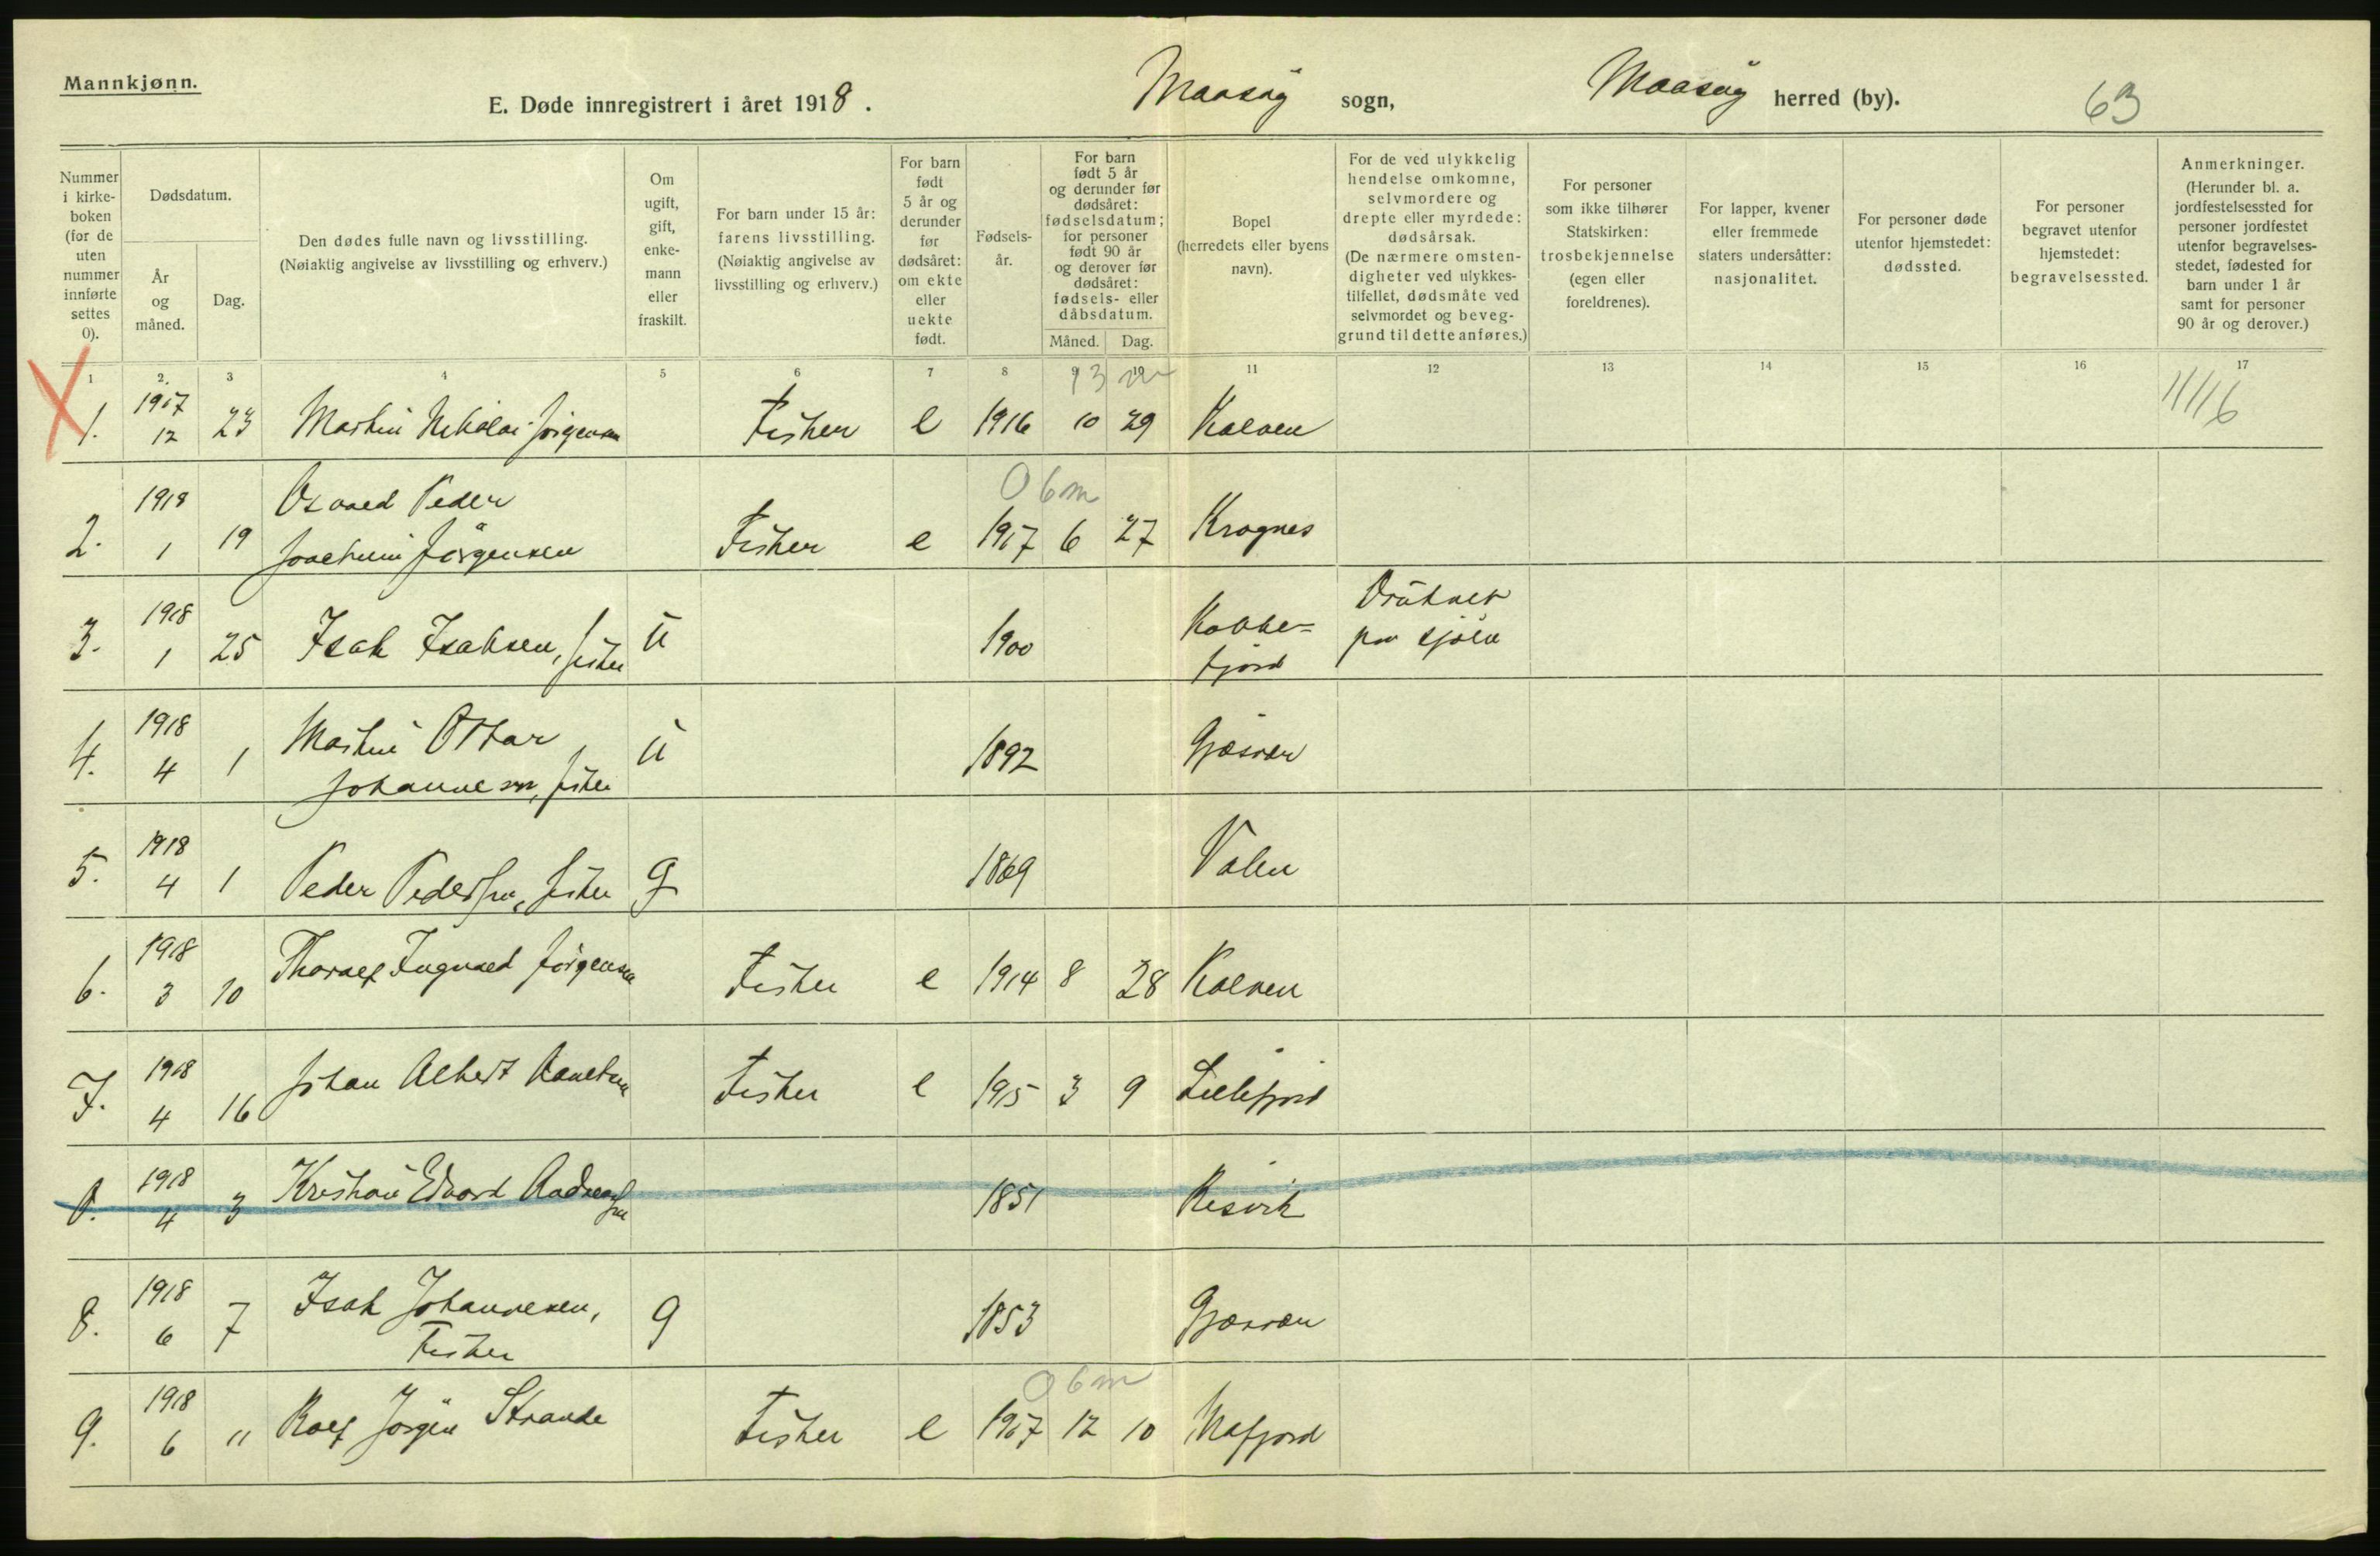 Mannkjønn.
E. Døde innregistrert i året 1918. Maasøy sogn, Maasøy herred (by). 63
Nummer i kirke-boken (for de uten nummer innførte settes 0).
Dødsdatum.
År og måned.
Dag.
Den dødes fulle navn og livsstilling.
(Nøiaktig angivelse av livsstilling og erhverv.)
Om ugift, gift, enke-mann eller fraskilt.
For barn under 15 år: farens livsstilling.
(Nøiaktig angivelse av livsstilling og erhverv.)
For barn født 5 år og derunder før dødsåret: om ekte eller uekte født.
Fødsels-år.
For barn født 5 år og derunder før dødsåret: fødselsdatum; for personer født 90 år og derover før dødsåret: fødsels- eller dåbsdatum.
Måned. Dag.
Bopel
(herredets eller byens navn).
For de ved ulykkelig hendelse omkomne, selvmordere og drepte eller myrdede: dødsårsak.
(De nærmere omsten-digheter ved ulykkes-tilfellet, dødsmåte ved selvmordet og beveg-grund til dette anføres.)
For personer som ikke tilhører Statskirken: trosbekjennelse (egen eller foreldrenes).
For lapper, kvener eller fremmede staters undersåtter: nasjonalitet.
For personer døde utenfor hjemstedet: dødssted.
For personer begravet utenfor hjemstedet: begravelsessted.
Anmerkninger.
(Herunder bl. a. jordfestelsessted for personer jordfestet utenfor begravelses-stedet, fødested for barn under 1 år samt for personer 90 år og derover.)
1 2. 3 4 5 6 7 8 9 10 11 12 13 14 15 16 17
1917
1. 12 23 Martin Nikolai Jørgensen Fisker e 1916 10 29 Kalven
0 6m
1918 Osvald Peder
2. 1 19 Joachim Jørgensen Fisker e 1917 6 27 Krognes
1918 Kobbe= Druknet
3. 1 25 Isak Isaksen, fisker u 1900 fjord paa sjøen
1918 Martin Ottar
4. 4 1 Johannesen, fisker u 1892 Gjæsvær
1918
5. 4 1 Peder Pedersen, fisker g 1869 Valen
1918
6. 3 10 Thoralf Ingvald Jørgensen Fisker e 1914 8 28 Kalven
1918
7. 4 16 Johan Albert Fisker e 1915 3 9 Lillefjord
1918
0. 4 3 Kristian Edvard Andreassen 1851 Risvik
1918 Isak Johannesen,
8. 6 7 Fisker g 1853 Gjæsvær
0 6m
1918
9. 6 11 Rolf Jørgen Strande Fisker e 1917 12 10 Mafjord